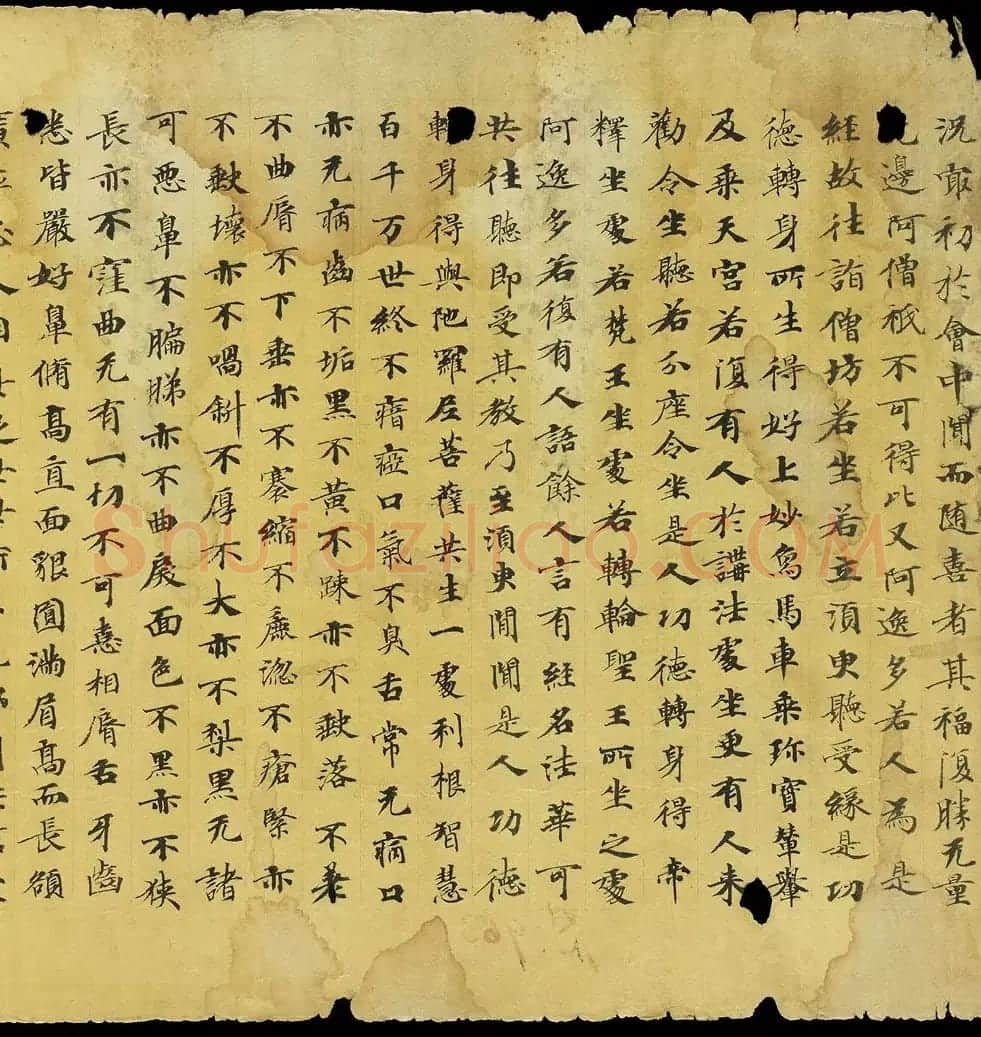 況㝡初於會中聞而随喜者其福復勝无量
邊阿僧祇不可得比又阿逸多若人為是
経故往詣僧坊若坐若立須臾聽受緣是功
德轉身所生得好上妙烏馬車乘珎寶輦轝
及乘天宮若復有人於講法處坐更有人来
勸令坐聽若分座令坐是人功德轉身得帝
釋坐處若梵王坐處若轉輪聖王所坐之處
阿逸多若復有人語餘人言有経名法華可
共往聽即受其教乃至須臾閒聞是人功德
轉身得與陁羅尼菩薩共生一處利根智慧
百千万世終不瘖瘂口氣不臭舌常无病口
亦无病齒不垢黑不黃不踈亦不缺落不差
不曲脣不下垂亦不褰縮不麁澁不瘡緊亦
不缺壞亦不喎斜不厚不大亦不梨黑无諸
可惡鼻不膈䏲亦不曲戾面色不黑亦不狹
長亦不窪曲无有一切不可憙相脣舌牙齒
悉皆嚴好鼻脩髙直面貌圓滿眉髙而長頟
人
Shufaziliao.COM